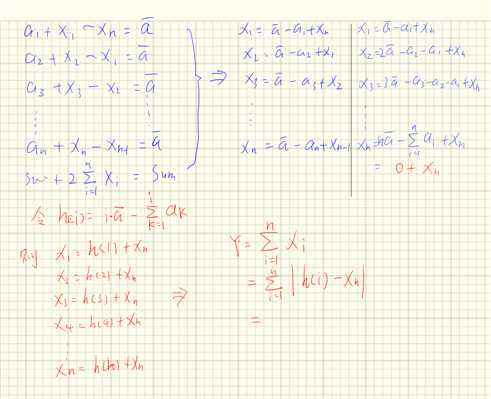 a₁ + x₁ - xₙ = ā
a₂ + x₂ - x₁ = ā
a₃ + x₃ - x₂ = ā
⋮
aₙ + xₙ - xₙ₋₁ = ā
+ 2 Σⁿᵢ₌₁ xᵢ = Sum
⇒
x₁ = ā - a₁ + xₙ
x₂ = ā - a₂ + x₁
x₃ = ā - a₃ + x₂
⋮
xₙ = ā - aₙ + xₙ₋₁
x₁ = ā - a₁ + xₙ
x₂ = 2ā - a₂ - a₁ + xₙ
x₃ = 3ā - a₃ - a₂ - a₁ + xₙ
⋮
xₙ = nā - Σⁿᵢ₌₁ aᵢ + xₙ
= 0 + xₙ
令 h(i) = i·ā - Σⁱₖ₌₁ aₖ
则 x₁ = h(1) + xₙ
x₂ = h(2) + xₙ
x₃ = h(3) + xₙ
x₄ = h(4) + xₙ
⋮
xₙ = h(n) + xₙ
⇒
Y = Σⁿᵢ₌₁ xᵢ
= Σⁿᵢ₌₁ |h(i) - xₙ|
=